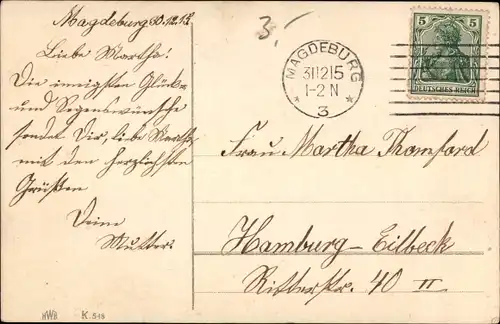 Magdeburg 30.12.12
3.-
Liebe Martha!
Die innigsten Glück-
und Segenswünsche
sendet Dir, liebe Martha
mit den herzlichsten
Grüßen
Deine
Mutter.
MAGDEBURG
311215
1-2 N
* 3 *
5 5
DEUTSCHES REICH
Frau Martha Thomford
Hamburg-Eilbeck
Ritterstr. 40 II
NWB K. 548